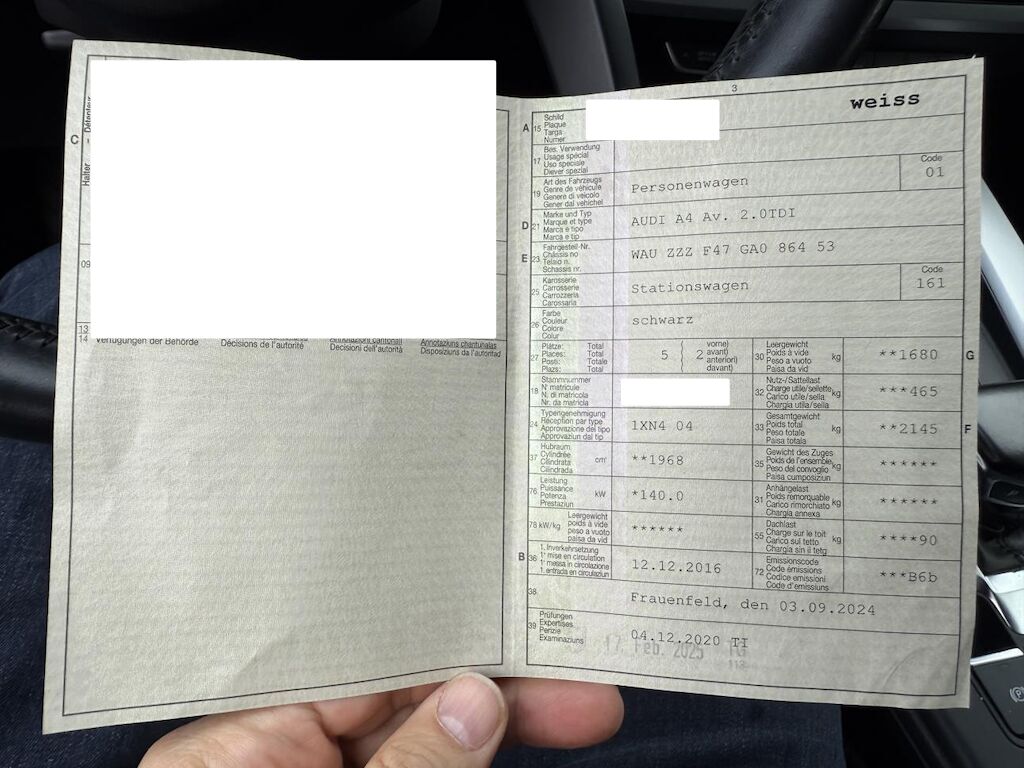 Détenteur
C
Halter
09
13
14
Verfügungen der Behörde
Décisions de l'autorité
Annotazioni cantonali
Decisioni dell'autorità
Annotaziuns chantunalas
Disposiziuns da l'autoritad
3
weiss
A 15 Schild
Plaque
Targa
Numer
17 Bes. Verwendung
Usage spécial
Uso speciale
Diever spezial
19 Art des Fahrzeugs
Genre de véhicule
Genere di veicolo
Gener dal vehichel
Personenwagen
Code
01
D 21 Marke und Typ
Marque et type
Marca e tipo
Marca e tip
AUDI A4 Av. 2.0TDI
E 23 Fahrgestell-Nr.
Châssis no
Telaio n.
Schassis nr.
WAU ZZZ F47 GA0 864 53
25 Karosserie
Carrosserie
Carrozzeria
Carossaria
Stationswagen
Code
161
26 Farbe
Couleur
Colore
Colur
schwarz
27 Plätze: Total
Places: Total
Posti: Totale
Plazs: Total
5 ( 2 vorne)
avant)
anteriori)
davant)
30 Leergewicht
Poids à vide
Peso a vuoto
Paisa da vid
kg
**1680
G
18 Stammnummer
N° matricule
N. di matricola
Nr. da matricla
32 Nutz-/Sattellast
Charge utile/sellette
Carico utile/sella
Chargia utila/sella
kg
***465
24 Typengenehmigung
Réception par type
Approvazione del tipo
Approvaziun dal tip
1XN4 04
33 Gesamtgewicht
Poids total
Peso totale
Paisa totala
kg
**2145
F
37 Hubraum
Cylindrée
Cilindrata
Cilindrada
cm³
**1968
35 Gewicht des Zuges
Poids de l'ensemble
Peso del convoglio
Paisa cumposiziun
kg
******
76 Leistung
Puissance
Potenza
Prestaziun
kW
*140.0
31 Anhängelast
Poids remorquable
Carico rimorchiato
Chargia annexa
kg
******
78 kW/kg
Leergewicht
poids à vide
peso a vuoto
paisa da vid
******
55 Dachlast
Charge sur le toit
Carico sul tetto
Chargia sin il tetg
kg
****90
B 36 1. Inverkehrsetzung
1re mise en circulation
1a messa in circolazione
1. entrada en circulaziun
12.12.2016
72 Emissionscode
Code émissions
Codice emissioni
Code d'emissiuns
***B6b
38
Frauenfeld, den 03.09.2024
39 Prüfungen
Expertises
Perizie
Examinaziuns
04.12.2020 TI
17. Feb. 2025 TG
113